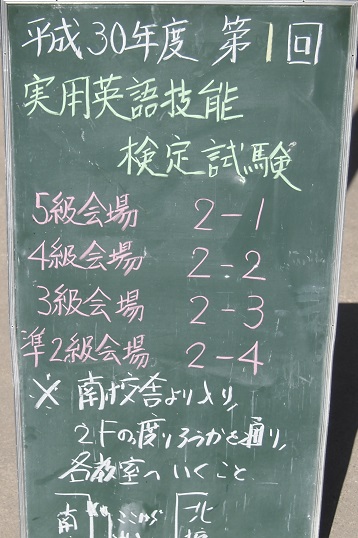 平成30年度 第1回
実用英語技能
検定試験
5級会場 2-1
4級会場 2-2
3級会場 2-3
準2級会場 2-4
※ 南校舎より入り,
2Fの度りろうかを通り,
各教室へいくこと
南 ここが 北